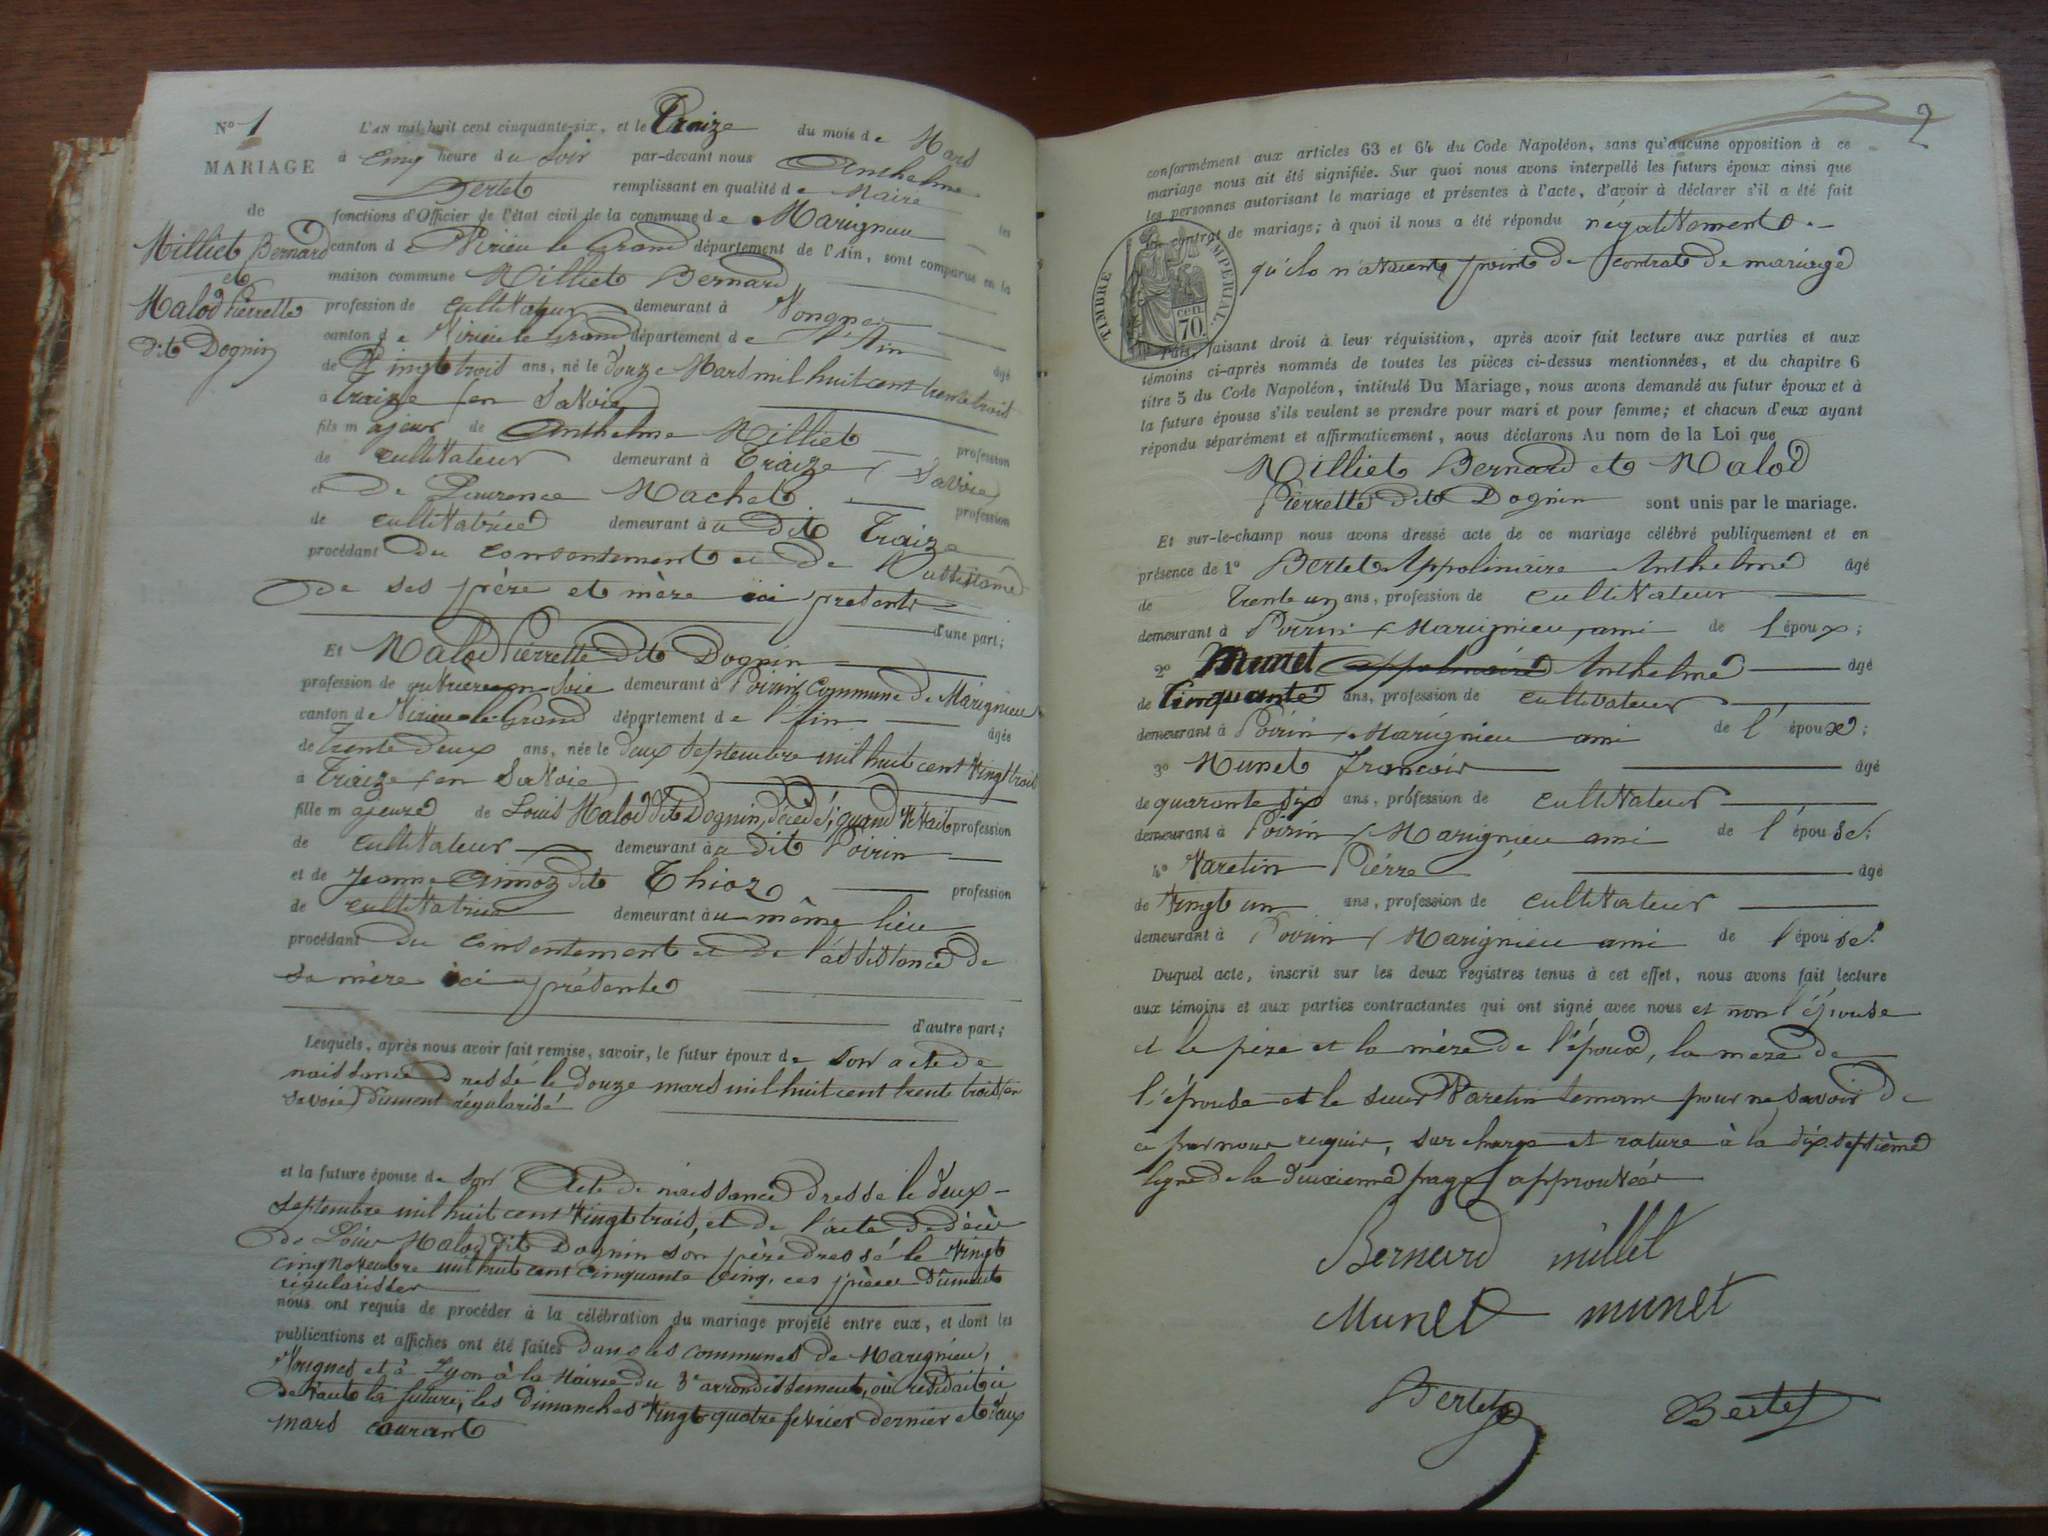 N° 1
MARIAGE
de
Milliet Bernard
et
Malod Pierrette
dit Dognin
L'AN mil huit cent cinquante-six, et le Traize du mois de Mars
à cinq heure du Soir par-devant nous Anthelme
Bertet remplissant en qualité de Maire les
fonctions d'Officier de l'état civil de la commune de Marignieu
canton de Virieu le Grand département de l'Ain, sont comparus en la
maison commune Milliet Bernard
profession de cultivateur demeurant à Vongnes
canton de Virieu le Grand département de l'Ain âgé
de Vingt trois ans, né le douze Mars mil huit cent trente trois
à Traize (en Savoie)
fils majeur de Anthelme Milliet profession
de cultivateur demeurant à Traize (Savoie)
et de Laurence Machet profession
de cultivatrice demeurant au dit Traize
procédant du consentement et de l'assistance
de ses père et mère ici présents
d'une part;
Et Malod Pierrette dit Dognin
profession de ouvrière en Soie demeurant à Poirin, commune de Marignieu
canton de Virieu le Grand département de l'Ain âgée
de trente deux ans, née le deux septembre mil huit cent vingt trois
à Traize (en Savoie)
fille majeure de Louis Malod dit Dognin, décédé, quand vivait profession
de cultivateur demeurant au dit Poirin
et de Jeanne Aimoz dit Thioz profession
de cultivatrice demeurant au même lieu
procédant du consentement et de l'assistance de
sa mère ici présente
d'autre part;
Lesquels, après nous avoir fait remise, savoir, le futur époux de son acte de
naissance dressé le douze mars mil huit cent trente trois (en
Savoie) dument régularisé
et la future épouse de son Acte de naissance dressé le deux
septembre mil huit cent vingt trois, et de l'acte de décès
de Louis Malod dit Dognin son père dressé le vingt
cinq novembre mil huit cent cinquante cinq, ces pièces dûment
régularisser
nous ont requis de procéder à la célébration du mariage projeté entre eux, et dont les
publications et affiches ont été faites dans les communes de Marignieu,
Vongnes et à Lyon à la Mairie du 3e arrondissement, où résidait ci
devant la future, les dimanches vingt quatre février dernier et deux
mars courant
2
conformément aux articles 63 et 64 du Code Napoléon, sans qu'aucune opposition à ce
mariage nous ait été signifiée. Sur quoi nous avons interpellé les futurs époux ainsi que
les personnes autorisant le mariage et présentes à l'acte, d'avoir à déclarer s'il a été fait
un contrat de mariage; à quoi il nous a été répondu négativement
qu'ils n'avaient point de contrat de mariage
TIMBRE IMPERIAL
70 cen.
Puis, faisant droit à leur réquisition, après avoir fait lecture aux parties et aux
témoins ci-après nommés de toutes les pièces ci-dessus mentionnées, et du chapitre 6
titre 5 du Code Napoléon, intitulé Du Mariage, nous avons demandé au futur époux et à
la future épouse s'ils veulent se prendre pour mari et pour femme; et chacun d'eux ayant
répondu séparément et affirmativement, nous déclarons Au nom de la Loi que
Milliet Bernard et Malod
Pierrette dit Dognin sont unis par le mariage.
Et sur-le-champ nous avons dressé acte de ce mariage célébré publiquement et en
présence de 1° Bertet Appolinaire Anthelme âgé
de Trente un ans, profession de cultivateur
demeurant à Poirin (Marignieu) ami de l'époux;
2° Munet Appolinaire Anthelme âgé
de Cinquante ans, profession de cultivateur
demeurant à Poirin (Marignieu ami de l'époux;
3° Munet François âgé
de quarante six ans, profession de cultivateur
demeurant à Poirin (Marignieu ami de l'épouse;
4° Varetin Pierre âgé
de vingt un ans, profession de cultivateur
demeurant à Poirin (Marignieu ami de l'épouse.
Duquel acte, inscrit sur les deux registres tenus à cet effet, nous avons fait lecture
aux témoins et aux parties contractantes qui ont signé avec nous et non l'épouse
et le père et la mère de l'époux, la mere de
l'épouse et le sieur Varetin temoin pour ne savoir de
ce par nous requis, surcharge et rature à la dix septième
ligne de la deuxième page approuvées
Bernard millet
Munet munet
Bertet Bertet